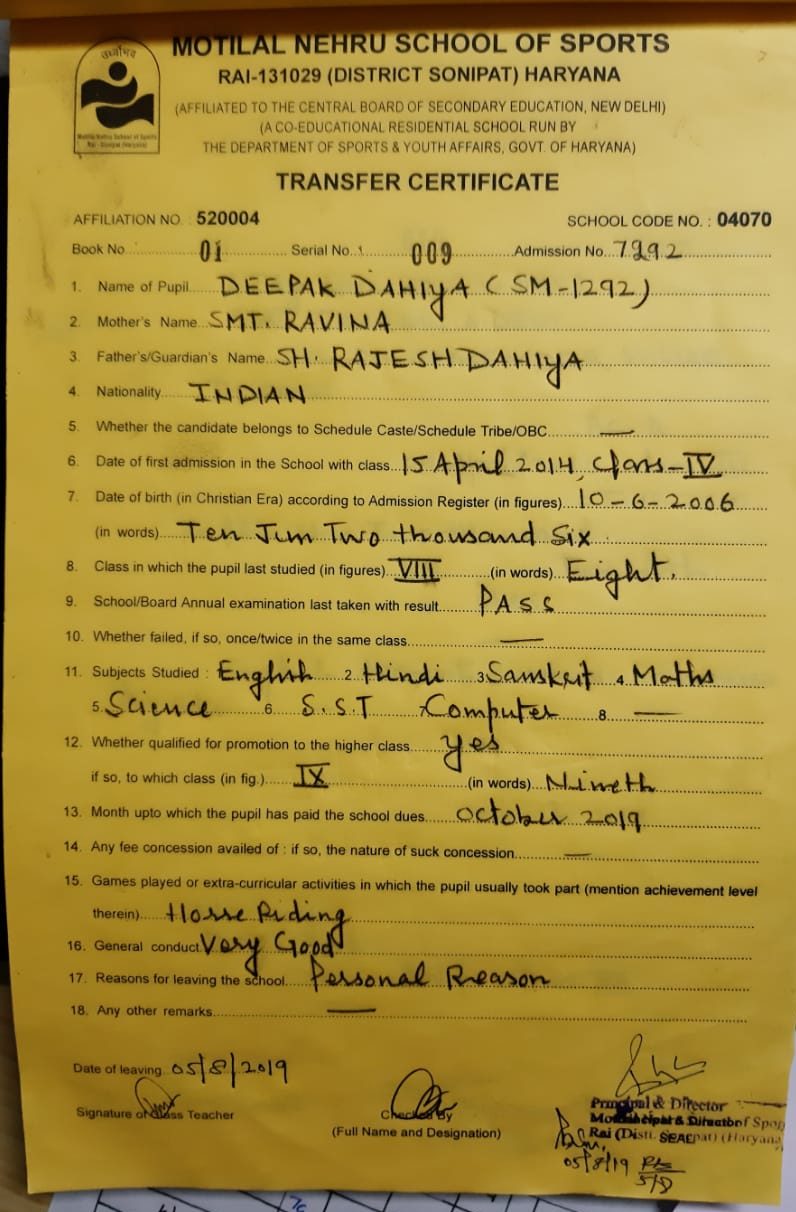 उत्तिष्ठत
MOTILAL NEHRU SCHOOL OF SPORTS
RAI-131029 (DISTRICT SONIPAT) HARYANA
(AFFILIATED TO THE CENTRAL BOARD OF SECONDARY EDUCATION, NEW DELHI)
(A CO-EDUCATIONAL RESIDENTIAL SCHOOL RUN BY
THE DEPARTMENT OF SPORTS & YOUTH AFFAIRS, GOVT. OF HARYANA)
Motilal Nehru School of Sports
Rai - Sonipat (Haryana)
TRANSFER CERTIFICATE
AFFILIATION NO. : 520004 SCHOOL CODE NO. : 04070
Book No. 01 Serial No. 009 Admission No. 7292
1. Name of Pupil DEEPAK DAHIYA (SM-1292)
2. Mother's Name SMT. RAVINA
3. Father's/Guardian's Name SH. RAJESH DAHIYA
4. Nationality INDIAN
5. Whether the candidate belongs to Schedule Caste/Schedule Tribe/OBC —
6. Date of first admission in the School with class 15 April 2014, Class-IV
7. Date of birth (in Christian Era) according to Admission Register (in figures) 10-6-2006
(in words) Ten Jun Two thousand Six
8. Class in which the pupil last studied (in figures) VIII (in words) Eight.
9. School/Board Annual examination last taken with result PASS
10. Whether failed, if so, once/twice in the same class —
11. Subjects Studied : English 2. Hindi 3. Sanskrit 4. Maths
5. Science 6. S.S.T 7. Computer 8. —
12. Whether qualified for promotion to the higher class yes
if so, to which class (in fig.) IX (in words) Nineth
13. Month upto which the pupil has paid the school dues October 2019
14. Any fee concession availed of : if so, the nature of suck concession —
15. Games played or extra-curricular activities in which the pupil usually took part (mention achievement level
therein) Horse Riding
16. General conduct Very Good
17. Reasons for leaving the school Personal Reason
18. Any other remarks —
Date of leaving 05/8/2019
Signature of Class Teacher Checked By
(Full Name and Designation)
Principal & Director
Principal & Director of Spor
Rai (Distt. Sonepat) (Haryana)
SEAL
05/8/19
5/8